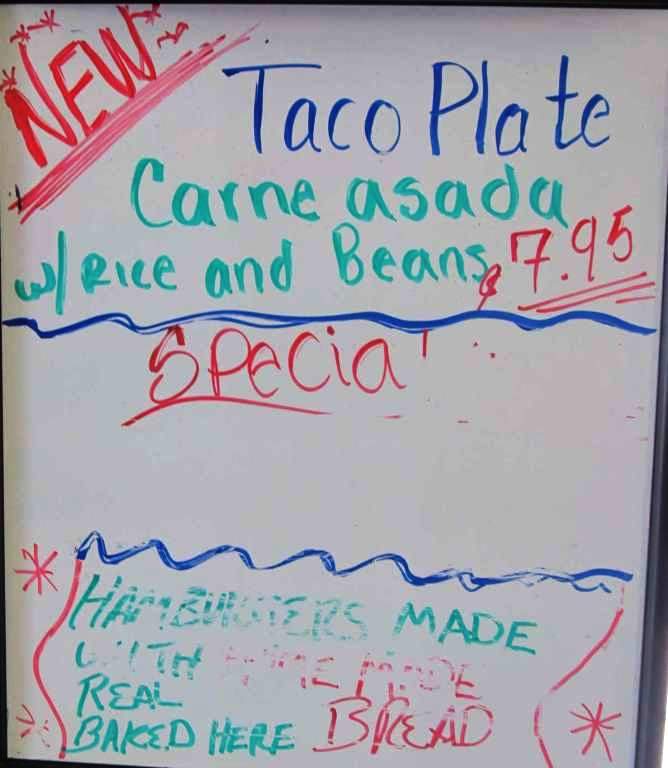 NEW
Taco Plate
Carne asada
w/ Rice and Beans $7.95
Special
HAMBURGERS MADE
WITH HOME MADE
REAL
BAKED HERE BREAD